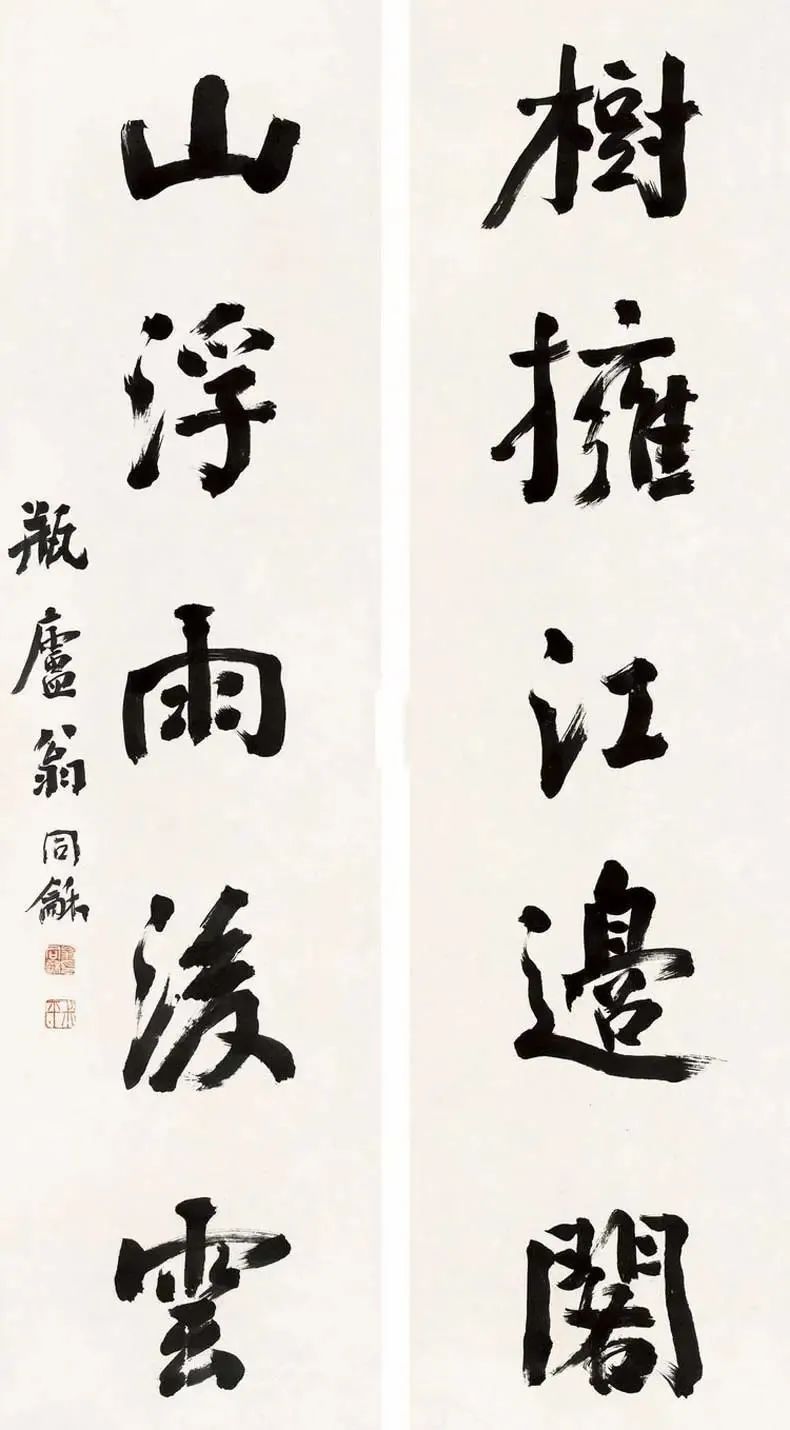 樹擁江邊閣
山浮雨後雲
瓶廬翁同龢
叔平